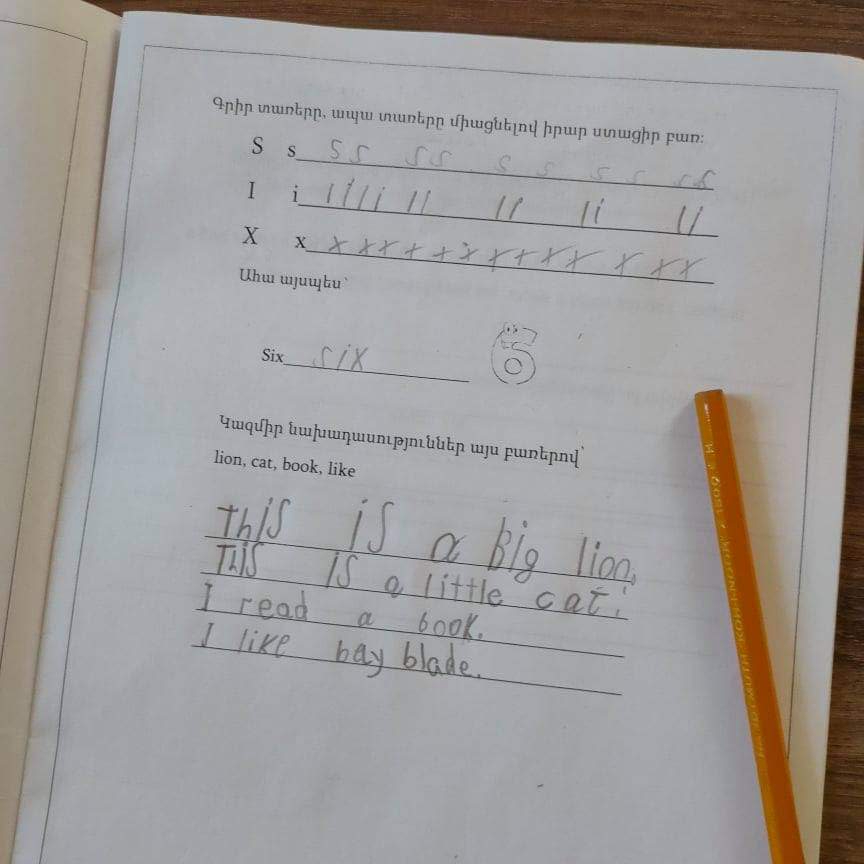 Գրիր տառերը, ապա տառերը միացնելով իրար ստացիր բառ:
S s s s s s s s s s s s
I i l i l i l l l l l i l i
X x x x x x x x x x x x x x x x
Ահա այսպես՝
Six six 6
Կազմիր նախադասություններ այս բառերով՝
lion, cat, book, like
This is a big lion,
This is a little cat.
I read a book.
I like bay blade.